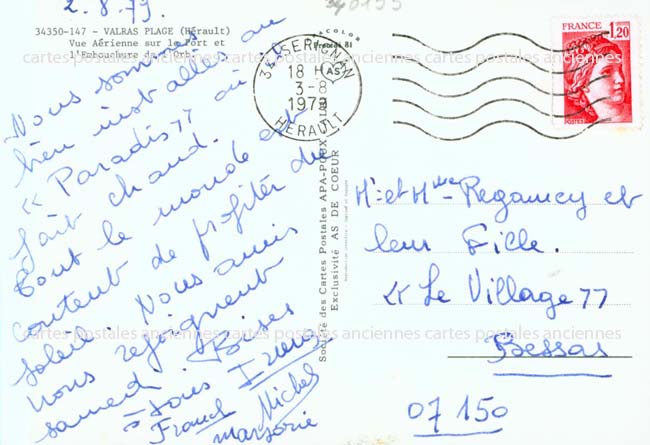 2.8.79.
34350-147 - VALRAS PLAGE (Hérault)
Vue Aérienne sur le Port et
l'Embouchure de l'Orb.
Nous sommes
bien installés au
« Paradis » où il
fait chaud.
Tout le monde est
content de profiter du
soleil. Nous amis
nous rejoignent
samedi. Bises
à tous
Franck
Michel
marjorie
Société des Cartes Postales APA-POUX
Exclusivité AS DE COEUR
34 SERIGNAN
18 H
3-8
1979
HERAULT
FRANCE
1,20
POSTES
Mr et Mme Regancy et
leur Fille.
« Le Village »
Bessas
07 150
cartes postales anciennes cartes postales anciennes cartes postales anciennes cartes postales anciennes